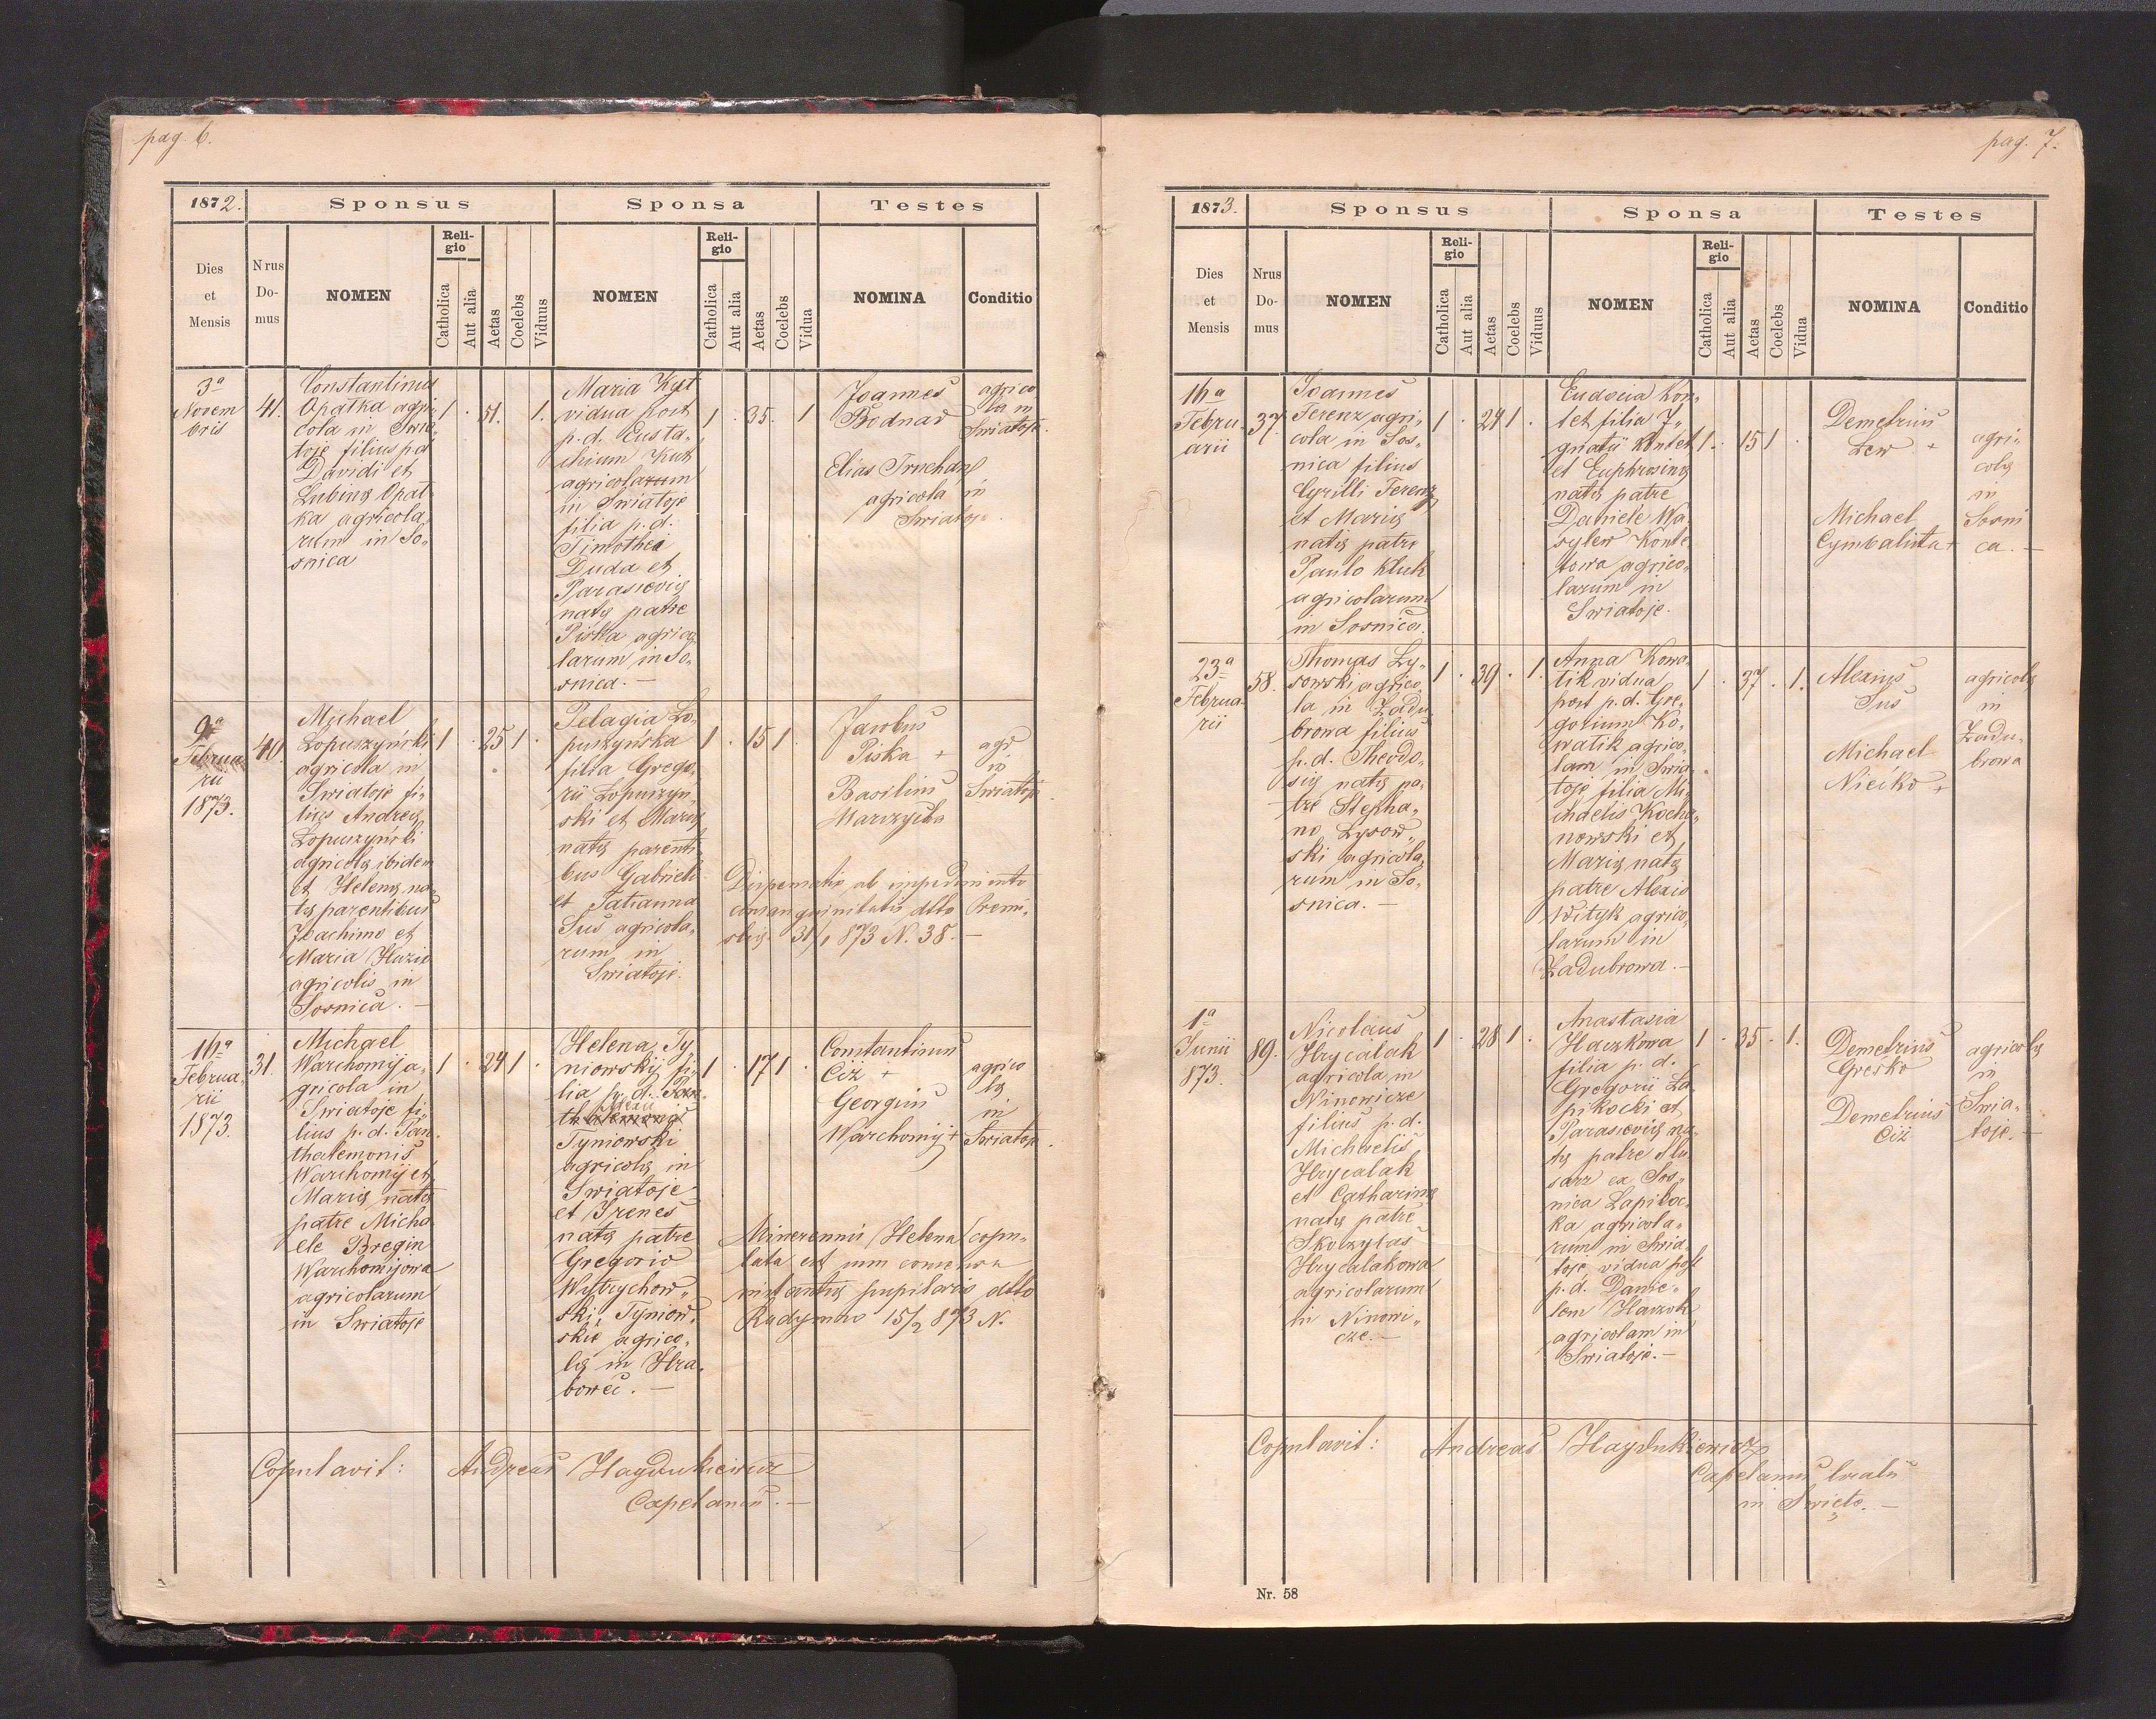 pag. 6.
1872.
Sponsus
Sponsa
Testes
Dies
et
Mensis
Nrus
Do-
mus
NOMEN
Reli-
gio
Catholica
Aut alia
Aetas
Coelebs
Viduus
NOMEN
Reli-
gio
Catholica
Aut alia
Aetas
Coelebs
Vidua
NOMINA
Conditio
3a
Novem
bris
41.
Constantinus
Opatka agri-
cola in Swia-
toje filius p.d.
Davidi et
Lubinę Opat
ka agricola
rum in So-
snica
1 . 51. 1.
Maria Kut
vidua post
p. d. Eusta-
chium Kut
agricolarum
in Swiatoje
filia p. d.
Timothei
Duda et
Parasievię
natę patre
Piska agrico
larum in So-
snica. —
1 . 35. 1
Joannes
Bodnar
agrico
la in
Swiatoje.
Elias Truchan
agricola in
Swiatoje.
9a
Februa
rii
1873.
40.
Michael
Łopuszyński
agricola in
Swiatoje fi-
lius Andreę
Łopuszyński
agricolę ibidem
et Helenę na-
tę parentibus
Joachimo et
Maria Huzio
agricolis in
Sosnica. —
1 . 25 1 .
Pelagia Ło-
puszyńska
filia Grego-
rii Łopuszyn-
ski et Marię
natę parenti-
bus Gabrieli
et Tatianna
Sus agricola-
rum in
Swiatoje.
1 . 15 1
Jacobus
Piska +
Basilius
Marczycha
agr
in
Swiatoje.
Dispensatio ab impedimento
consanguinitatis ddto Premi-
slię 31/1 873 N. 38. —
16a
Februa-
rii
1873.
31.
Michael
Warchomij a-
gricola in
Swiatoje fi-
lius p. d. Pan-
thalemonis
Warchomij et
Marię natę
patre Micha
ele Bregin
Warchomijowa
agricolarum
in Swiatoje
1 . 24 1 .
Helena Ty
niowskij fi-
lia p. d. Pan
thalemonis
Tyniowski
agricolę in
Swiatoje
et Irenes
natę patre
Gregorio
Wytrychow-
ski, Tyniow-
skie agrico-
lę in Hra-
bowec. —
1 . 17 1 .
Constantinus
Ciż +
Georgius
Warchomij +
agrico
lę
in
Swiatoje.
Minorennis Helena copu-
lata est cum consensu
instantię pupilaris ddto
Radymno 15/2 873 N.
Copulavit: Andreas Haydukiewicz
Capelanus. —
pag. 7.
1873.
Sponsus
Sponsa
Testes
Dies
et
Mensis
Nrus
Do-
mus
NOMEN
Reli-
gio
Catholica
Aut alia
Aetas
Coelebs
Viduus
NOMEN
Reli-
gio
Catholica
Aut alia
Aetas
Coelebs
Vidua
NOMINA
Conditio
16a
Febru-
arii
37.
Joannes
Ferenz agri-
cola in Sos-
nica filius
Cyrilli Ferenz
et Marię
natę patre
Paulo Kluk
agricolarum
in Sosnica.
1 . 24 1 .
Eudocia Kon-
tet filia I-
gnatii Kontet
et Euphrosinę
natę patre
Daniele Wa
sylew Konte
towa agrico-
larum in
Swiatoje.
1 . 15 1 .
Demetrius
Lew +
Michael
Cymbalista +
agri-
colę
in
Sosni
ca. —
23a
Februa-
rii
58.
Thomas Ły-
sowski agrico
la in Zadu
browa filius
p. d. Theodo-
się natę pa-
tre Stepha-
no Łysow-
ski agricola
rum in So-
snica. —
1 . 39 . 1.
Anna Kowa
lik vidua
post p. d. Gre-
gorium Ko-
walik agrico-
lam in Swia
toje filia Mi-
chaelis Kocha-
nowski et
Marię natę
patre Alexio
Wityk agrico-
larum in
Zadubrowa. —
1 . 37 . 1.
Alexius
Sus
Michael
Niecko +
agricolę
in
Zadu-
browa
1a
Junii
873.
89.
Nicolaus
Hrycalak
agricola in
Ninowicze
filius p. d.
Michaelis
Hrycalak
et Catharinę
natę patre
Skoczylas
Hrycalakowa
agricolarum
in Ninowi-
cze. —
1 . 28 1 .
Anastasia
Haczkowa
filia p. d.
Gregorii Ła
pikocki et
Parasievię na-
tę patre Slu
sarz ex Sos-
nica Łapikoc-
ka agricola-
rum in Swia-
toje vidua post
p. d. Danie-
lem Haczok
agricolam in
Swiatoje. —
1 . 35 . 1.
Demetrius
Gresko
Demetrius
Ciż
agricolę
in
Swia-
toje. —
Copulavit: Andreas Haydukiewicz
Capelanus localis
in Święte. —
Nr. 58